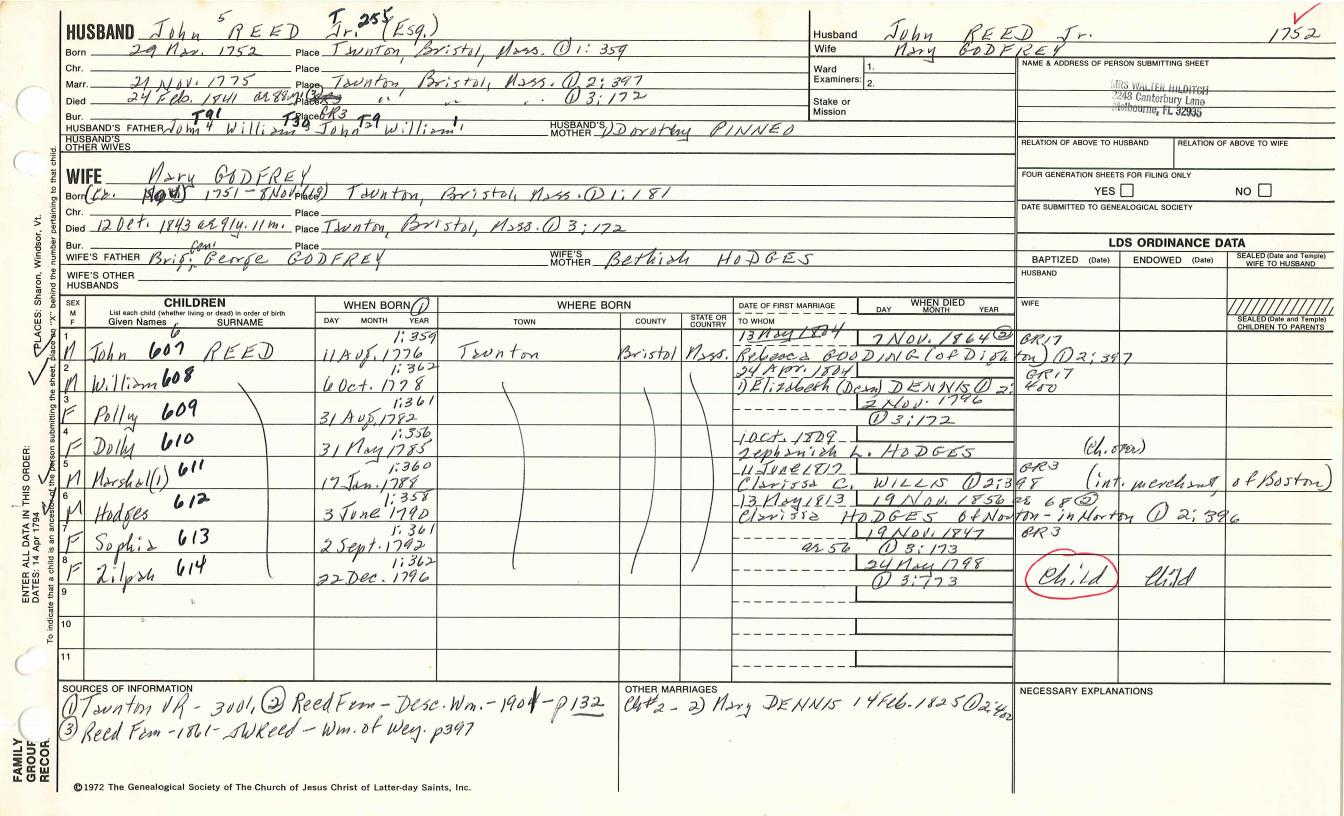 HUSBAND John 5 REED Jr. T 255 (Esq.)
Born 29 Mar. 1752 Place Taunton, Bristol, Mass. ① 1: 359
Chr. Place
Marr. 21 Nov. 1775 Place Taunton, Bristol, Mass. ① 2: 397
Died 24 Feb. 1841 Place " " " ① 3: 172
Bur. Place GR3
HUSBAND'S FATHER T91 John 4 T30 William 3 T9 John William 1. HUSBAND'S MOTHER Dorothy PINNEO
HUSBAND'S OTHER WIVES
Husband John REED Jr. 1752
Wife Mary GODFREY
Ward Examiners: 1. 2.
Stake or Mission
NAME & ADDRESS OF PERSON SUBMITTING SHEET
MRS WALTER HILDITCH
2248 Canterbury Lane
Melbourne, FL 32935
RELATION OF ABOVE TO HUSBAND RELATION OF ABOVE TO WIFE
FOUR GENERATION SHEETS FOR FILING ONLY
YES NO
DATE SUBMITTED TO GENEALOGICAL SOCIETY
WIFE Mary GODFREY
Born (Ca. 1751 - 8 Nov. Place Taunton, Bristol, Mass. ① 1: 181
Chr. Place
Died 12 Oct. 1843 ae 91y. 11m. Place Taunton, Bristol, Mass. ① 3: 172
Bur. Place
WIFE'S FATHER Brig. Gen. George GODFREY WIFE'S MOTHER Bethiah HODGES
WIFE'S OTHER HUSBANDS
LDS ORDINANCE DATA
BAPTIZED (Date) ENDOWED (Date) SEALED (Date and Temple) WIFE TO HUSBAND
HUSBAND
WIFE
SEALED (Date and Temple) CHILDREN TO PARENTS
SEX M F
CHILDREN
List each child (whether living or dead) in order of birth
Given Names SURNAME
WHEN BORN ①
DAY MONTH YEAR
WHERE BORN
TOWN COUNTY STATE OR COUNTRY
DATE OF FIRST MARRIAGE
TO WHOM
WHEN DIED
DAY MONTH YEAR
1 6 1: 359 13 May 1804 7 Nov. 1864 ② GR17
M John 607 REED 11 Aug. 1776 Taunton Bristol Mass. Rebecca GOODING (of Dighton) ① 2: 397
2 1: 362 24 Apr. 1804 GR17
M William 608 6 Oct. 1778 1) Elizabeth (Dean) DENNIS ① 2: 400
3 1: 361 2 Nov. 1796
F Polly 609 31 Aug. 1782 ① 3: 172
4 1: 356 1 Oct. 1809
F Dolly 610 31 May 1785 Zephaniah L. HODGES
5 1: 360 11 June 1817 GR3
M Marshal(l) 611 17 Jan. 1788 Clarissa C. WILLIS ① 2: 398 (int. merchant, of Boston)
6 1: 358 13 May 1813 19 Nov. 1856 ae 68 ②
M Hodges 612 3 June 1790 Clarissa HODGES of Norton - in Norton ① 2: 396
7 1: 361 19 Nov. 1847 GR3
F Sophia 613 2 Sept. 1792 ae 56 ① 3: 173
8 1: 362 24 May 1798
F Zilpah 614 22 Dec. 1796 ① 3: 173 Child Child
9
10
11
SOURCES OF INFORMATION
① Taunton VR - 3001, ② Reed Fam - Desc. Wm. - 1901 - p132
③ Reed Fam - 1861 - JWReed - Wm. of Wey. p397
OTHER MARRIAGES
Ch#2 - 2) Mary DENNIS 14 Feb. 1825 ① 2: 400
NECESSARY EXPLANATIONS
©1972 The Genealogical Society of The Church of Jesus Christ of Latter-day Saints, Inc.
FAMILY GROUP RECOR
ENTER ALL DATA IN THIS ORDER:
DATES: 14 Apr 1794 PLACES: Sharon, Windsor, Vt.
To indicate that a child is an ancestor of the person submitting the sheet, place an "X" behind the number pertaining to that child.